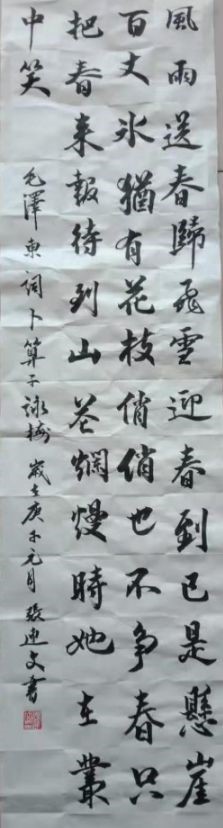 風雨送春歸飛雪迎春到已是懸崖
百丈冰猶有花枝俏俏也不争春只
把春来報待到山花爛熳時她在叢
中笑
毛澤東詞卜算子詠梅 歲在庚子元月 張文書